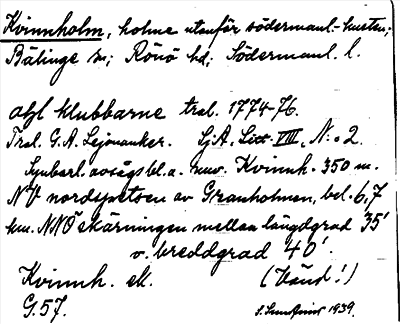 Kvinnholm, holme utanför södermanl.-kusten;
Bälinge sn; Rönö hd; Södermanl. l.
afl klubbarne tral. 1774-76.
Tral. G.A. Lejonanker. Sj.A. Litt VIII, N:o 2.
Synbarl. avsågs bl.a. nuv. Kvinnh. 350 m.
NV nordspetsen av Granholmen, bel. 6,7
km. NNÖ skärningen mellan längdgrad 35'
o. breddgrad 40'.
Kvinnh. ek.
(Vänd!)
G.57.
1939.